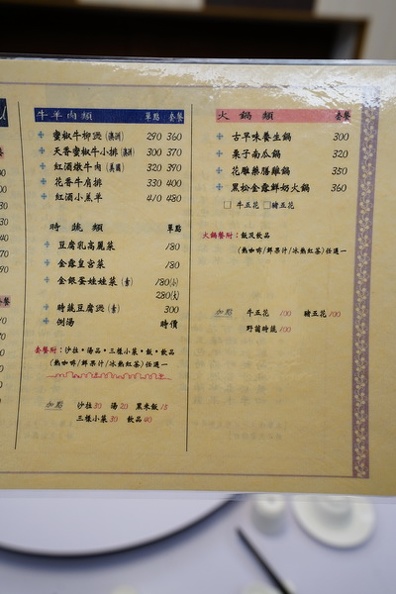 牛羊肉類 單點 套餐
蜜椒牛柳煲(澳洲) 290 360
天香蜜椒牛小排(澳洲) 300 370
紅酒燉牛肉(美國) 320 390
花香牛肩排 330 400
紅酒小羔羊 410 480
時蔬類 單點
豆腐乳高麗菜 180
金露皇宮菜 180
金銀蛋娃娃菜(素) 180(小)
280(大)
時蔬豆腐煲(素) 300
例湯 時價
套餐附:沙拉・湯品・三樣小菜・飯・飲品
(熱咖啡/鮮果汁/冰熱紅茶)任選一
加點 沙拉30 湯20 黑米飯15
三樣小菜30 飲品40
火鍋類 套餐
古早味養生鍋 300
栗子南瓜鍋 320
花雕藥膳雞鍋 330
黑松金露鮮奶火鍋 360
□牛五花 □豬五花
火鍋餐附:飯及飲品
(熱咖啡/鮮果汁/冰熱紅茶)任選一
加點 牛五花 100 豬五花 100
野菌時蔬100